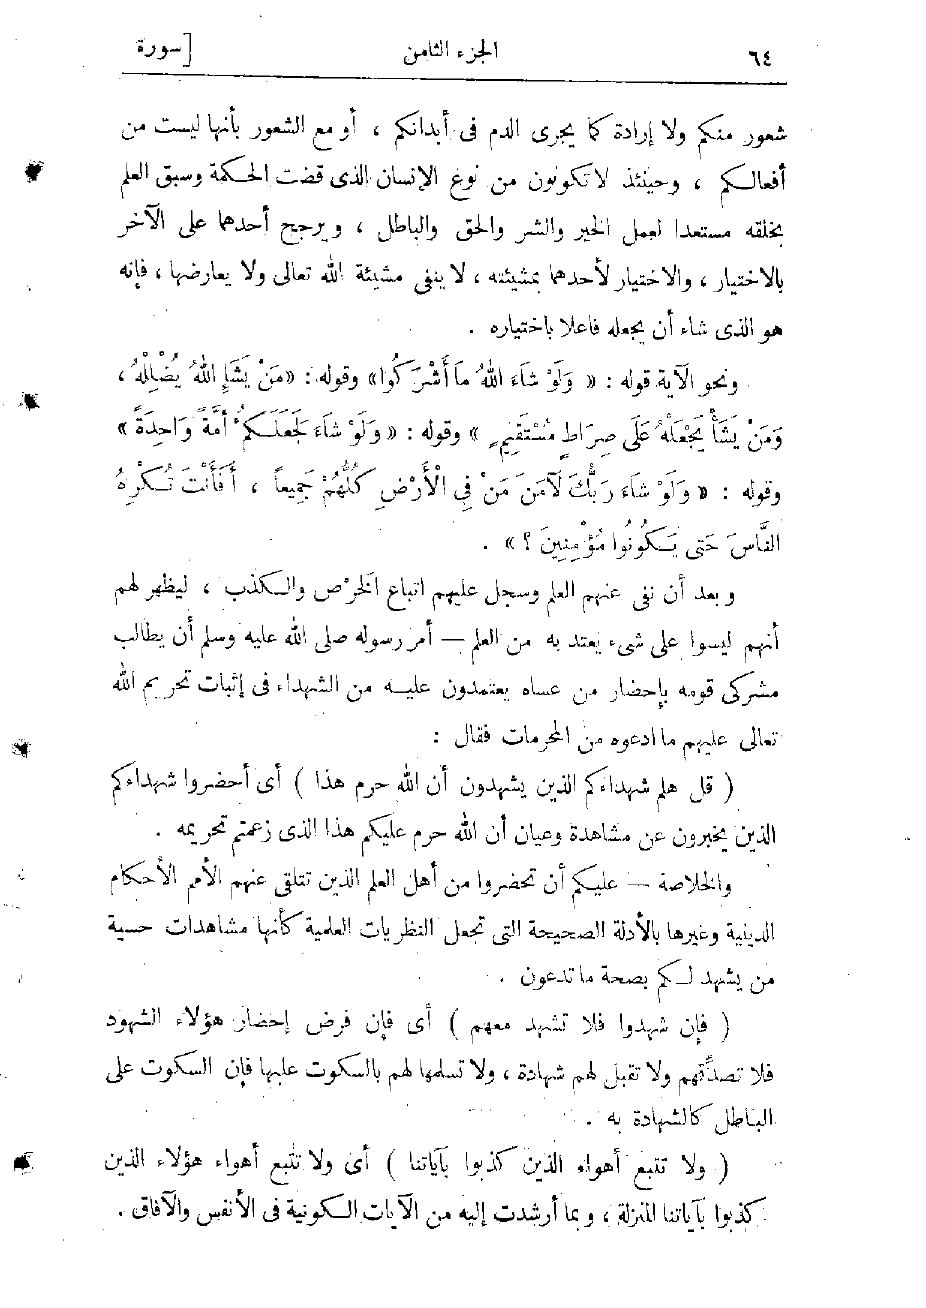 ٦٤ الجزء الثامن [سورة
شعور منكم ولا إرادة كما يجرى الدم فى أبدانكم ، أو مع الشعور بأنها ليست من
أفعالكم ، وحينئذ لا تكونون من نوع الإنسان الذى قضت الحكمة وسبق العلم
بخلقه مستعدا لعمل الخير والشر والحق والباطل ، ويرجح أحدهما على الآخر
بالاختيار ، والاختيار لأحدهما بمشيئته ، لا ينفى مشيئة الله تعالى ولا يعارضها ، فإنه
هو الذى شاء أن يجعله فاعلا باختياره .
ونحو الآية قوله : « وَلَوْ شَاءَ اللهُ مَا أَشْرَكُوا » وقوله : « مَنْ يَشَإِ اللهُ يُضْلِلْهُ ،
وَمَنْ يَشَأْ يَجْعَلْهُ عَلَى صِرَاطٍ مُسْتَقِيمٍ » وقوله : « وَلَوْ شَاءَ لَجَعَلَكُمْ أُمَّةً وَاحِدَةً »
وقوله : « وَلَوْ شَاءَ رَبُّكَ لَآمَنَ مَنْ فِي الْأَرْضِ كُلُّهُمْ جَمِيعاً ، أَفَأَنْتَ تُكْرِهُ
النَّاسَ حَتى يَكُونُوا مُؤْمِنِينَ ؟ » .
وبعد أن نفى عنهم العلم وسجل عليهم اتباع الخرْص والكذب ، ليظهر لهم
أنهم ليسوا على شىء يعتد به من العلم — أمر رسوله صلى الله عليه وسلم أن يطالب
مشركى قومه بإحضار من عساه يعتمدون عليه من الشهداء فى إثبات تحريم الله
تعالى عليهم ما ادعوه من المحرمات فقال :
( قل هلم شهداءكم الذين يشهدون أن الله حرم هذا ) أى أحضروا شهداءكم
الذين يخبرون عن مشاهدة وعيان أن الله حرم عليكم هذا الذى زعمتم تحريمه .
والخلاصة — عليكم أن تحضروا من أهل العلم الذين تتلقى عنهم الأمم الأحكام
الدينية وغيرها بالأدلة الصحيحة التى تجعل النظريات العلمية كأنها مشاهدات حسية
من يشهد لكم بصحة ما تدعون .
( فإن شهدوا فلا تشهد معهم ) أى فإن فرض إحضار هؤلاء الشهود
فلا تصدِّقهم ولا تقبل لهم شهادة ، ولا تسلمها لهم بالسكوت عليها فإن السكوت على
الباطل كالشهادة به .
( ولا تتبع أهواء الذين كذبوا بآياتنا ) أى ولا تتبع أهواء هؤلاء الذين
كذبوا بآياتنا المنزلة ، وبما أرشدت إليه من الآيات الكونية فى الأنفس والآفاق .